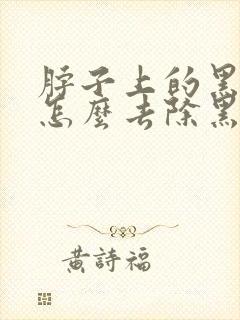 脖子上的黑
怎麼去除黑
黃詩福